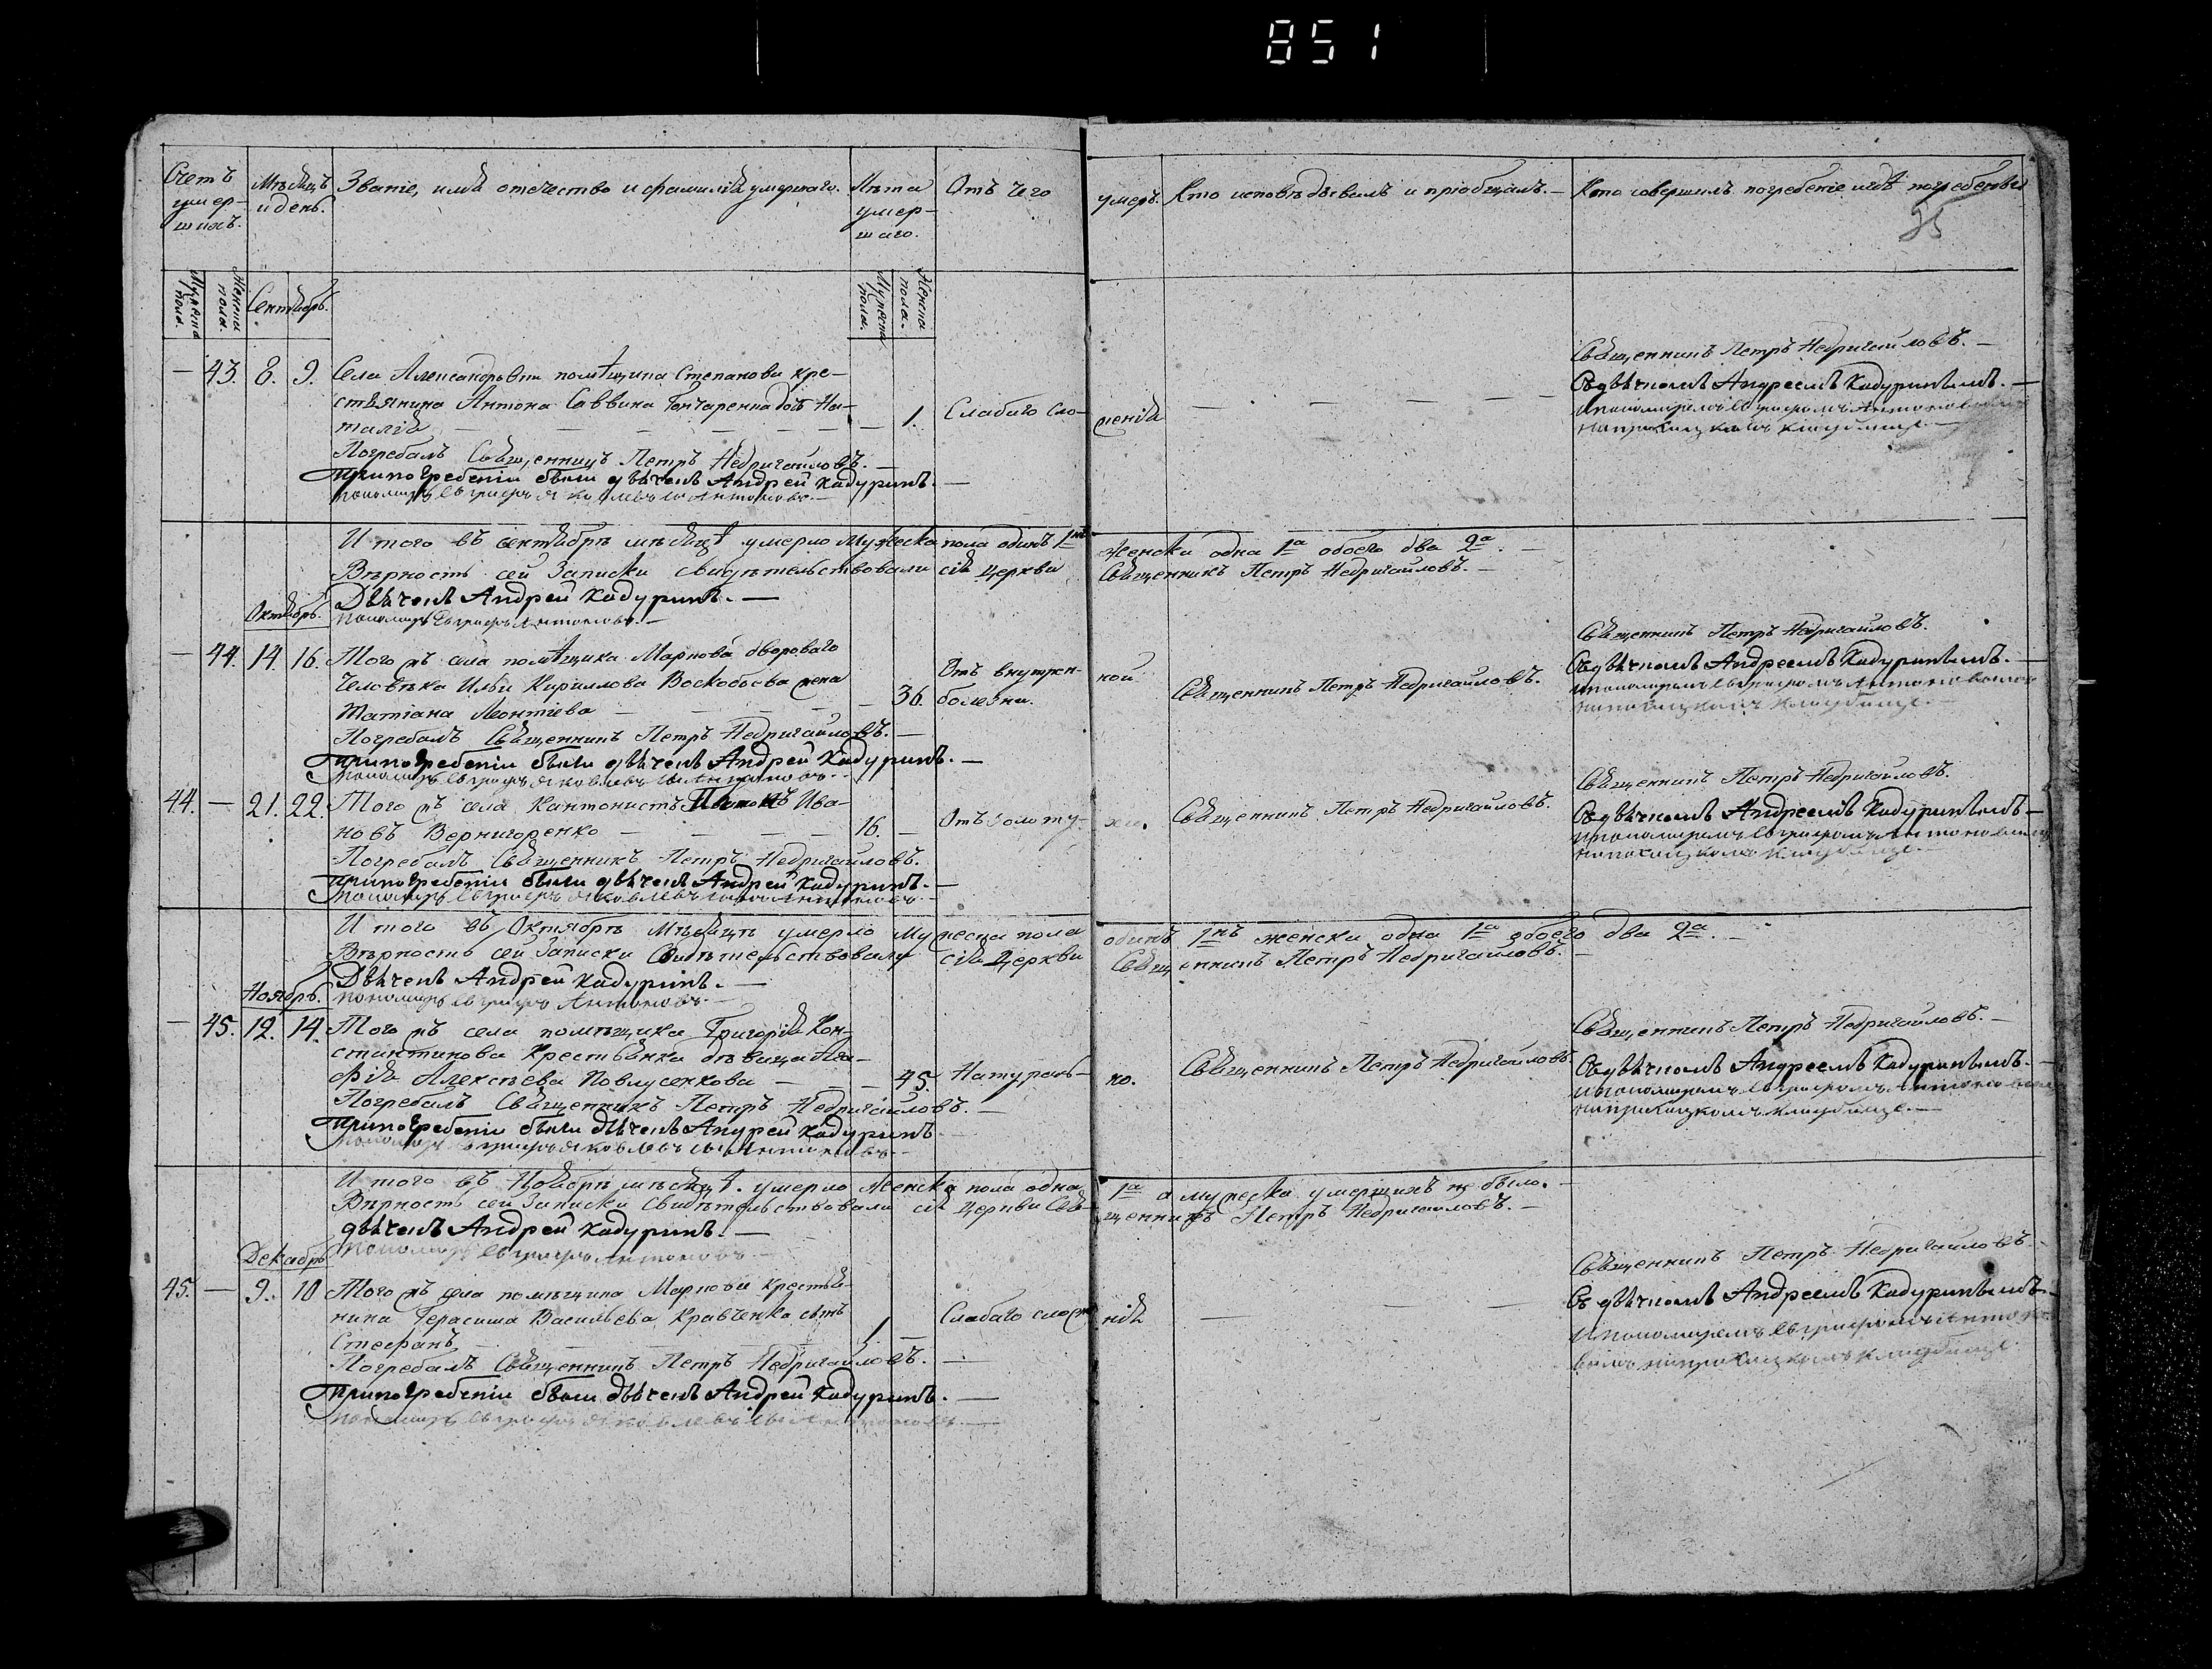 851
Счетъ умер-шихъ.
Мѣсяцъ и день.
Званіе, имя отечество и фамилія умершаго.
Лѣта умер-шаго.
Отъ чего
умеръ.
Кто исповѣдывалъ и пріобщалъ.—
Кто совершилъ погребеніе и гдѣ погребены
Мужеска пола.
Женска пола.
Сентябрь.
Мужеска пола.
Женска пола.
— 43. 8. 9. Села Александровки помѣщика Степанова кре-
стьянина Антона Саввина Гончаренка дочь На-
талія — 1. Слабаго сло-
женія
Погребалъ Священникъ Петръ Недригайловъ.—
При погребеніи были дьячекъ Андрей Кадуринъ.—
Священникъ Петръ Недригайловъ.—
Съ дьячкомъ Андреемъ Кадуринымъ.—
и пономаремъ Антоновымъ
на приходскомъ кладбище.—
И того въ сентябрѣ мѣсяцѣ умерло мужеска пола одинъ 1нъ
женска одна 1а обоего два 2а.—
Вѣрность сей Записки свидѣтельствовали сія Церкви
Священникъ Петръ Недригайловъ.—
Дьячекъ Андрей Кадуринъ.—
Пономарь Антоновъ.—
Октябрь.
— 44. 14. 16. Того жъ села помѣщика Маркова двороваго
человѣка Ильи Кириллова Воскобоева жена
Татіана Леонтіева — 36.
Отъ внутрен-
ной
болезни.
Священникъ Петръ Недригайловъ.
Погребалъ Священникъ Петръ Недригайловъ.—
При погребеніи были дьячекъ Андрей Кадуринъ.—
Священникъ Петръ Недригайловъ.
Съ дьячкомъ Андреемъ Кадуринымъ.—
и пономаремъ Антоновымъ
кладбище.—
44. — 21. 22. Того жъ села Кантонистъ Ива-
новъ Вернигоренко — 16. —
Отъ золоту-
хи.
Священникъ Петръ Недригайловъ.
Погребалъ Священникъ Петръ Недригайловъ.
При погребеніи были дьячекъ Андрей Кадуринъ.—
Священникъ Петръ Недригайловъ.
Съ дьячкомъ Андреемъ Кадуринымъ—
и пономаремъ Антоновымъ
кладбище.—
И того въ Октябрѣ мѣсяцѣ умерло мужеска пола
одинъ 1нъ женска одна 1а обоего два 2а.—
Вѣрность сей Записки Свидѣтельствовали сія Церкви
Священникъ Петръ Недригайловъ.—
Дьячекъ Андрей Кадуринъ.—
пономарь Антоновъ.—
Ноябрь.
— 45. 12. 14. Того жъ села помѣщика Григорія Кон-
стантинова Крестьянка дѣвица Ага-
фія Алексѣева Павлусенкова — 45.
Натураль-
но.
Священникъ Петръ Недригайловъ.
Погребалъ Священникъ Петръ Недригайловъ.—
При погребеніи были дьячекъ Андрей Кадуринъ
Священникъ Петръ Недригайловъ.—
Съ дьячкомъ Андреемъ Кадуринымъ.—
и пономаремъ Антоновымъ
на приходскомъ кладбище.—
И того въ Ноябрѣ мѣсяцѣ. умерло женска пола одна
1а а мужеска умершихъ не было.—
Вѣрность сей Записки Свидѣтельствовали сія Церкви Свя-
щенникъ Петръ Недригайловъ.—
дьячекъ Андрей Кадуринъ.—
пономарь Антоновъ.—
Декабрь
45. — 9. 10 Того жъ села помѣщика Маркова Крестья-
нина Герасима Васильева Кравченка сынъ
Стефанъ — 1 —
Слабаго слож
нія
Погребалъ Священникъ Петръ Недригайловъ.—
При погребеніи были дьячекъ Андрей Кадуринъ.—
Священникъ Петръ Недригайловъ.
Съ дьячкомъ Андреемъ Кадуринымъ.
и пономаремъ Антоно-
вымъ на приходскомъ кладбище